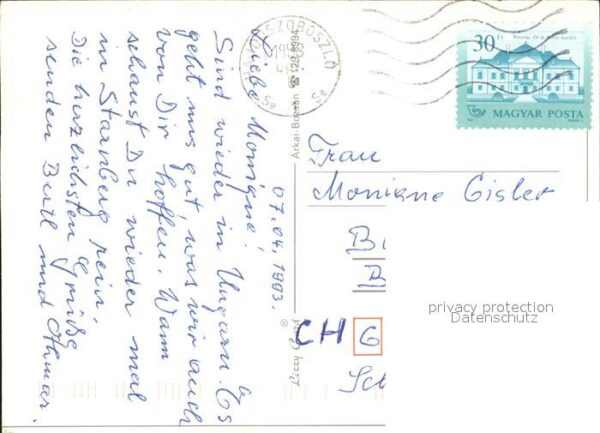 07.04.1993.
Liebe Monique!
Sind wieder in Ungarn. Es
geht uns gut, was wir auch
von Dir hoffen. Wann
schaust Du wieder mal
in Starnberg rein.
Die herzlichsten Grüße
senden Bertl und Othmar.
HAJDÚSZOBOSZLÓ
30 Ft
MAGYAR POSTA
Árkai-Bocsán ☎ 129-8994
Frau
Monique Gisler
B
CH 6
Sch
privacy protection
Datenschutz